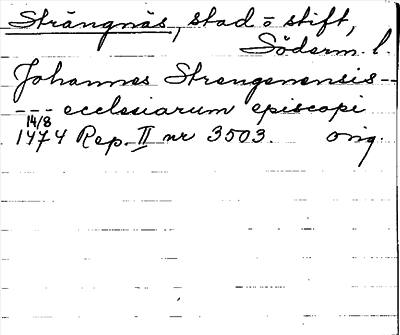 Strängnäs, stad o stift,
Söderm. l.
Johannes Strengenensis --
--- ecclesiarum episcopi
14/8
1474 Rep. II nr 3503. orig.